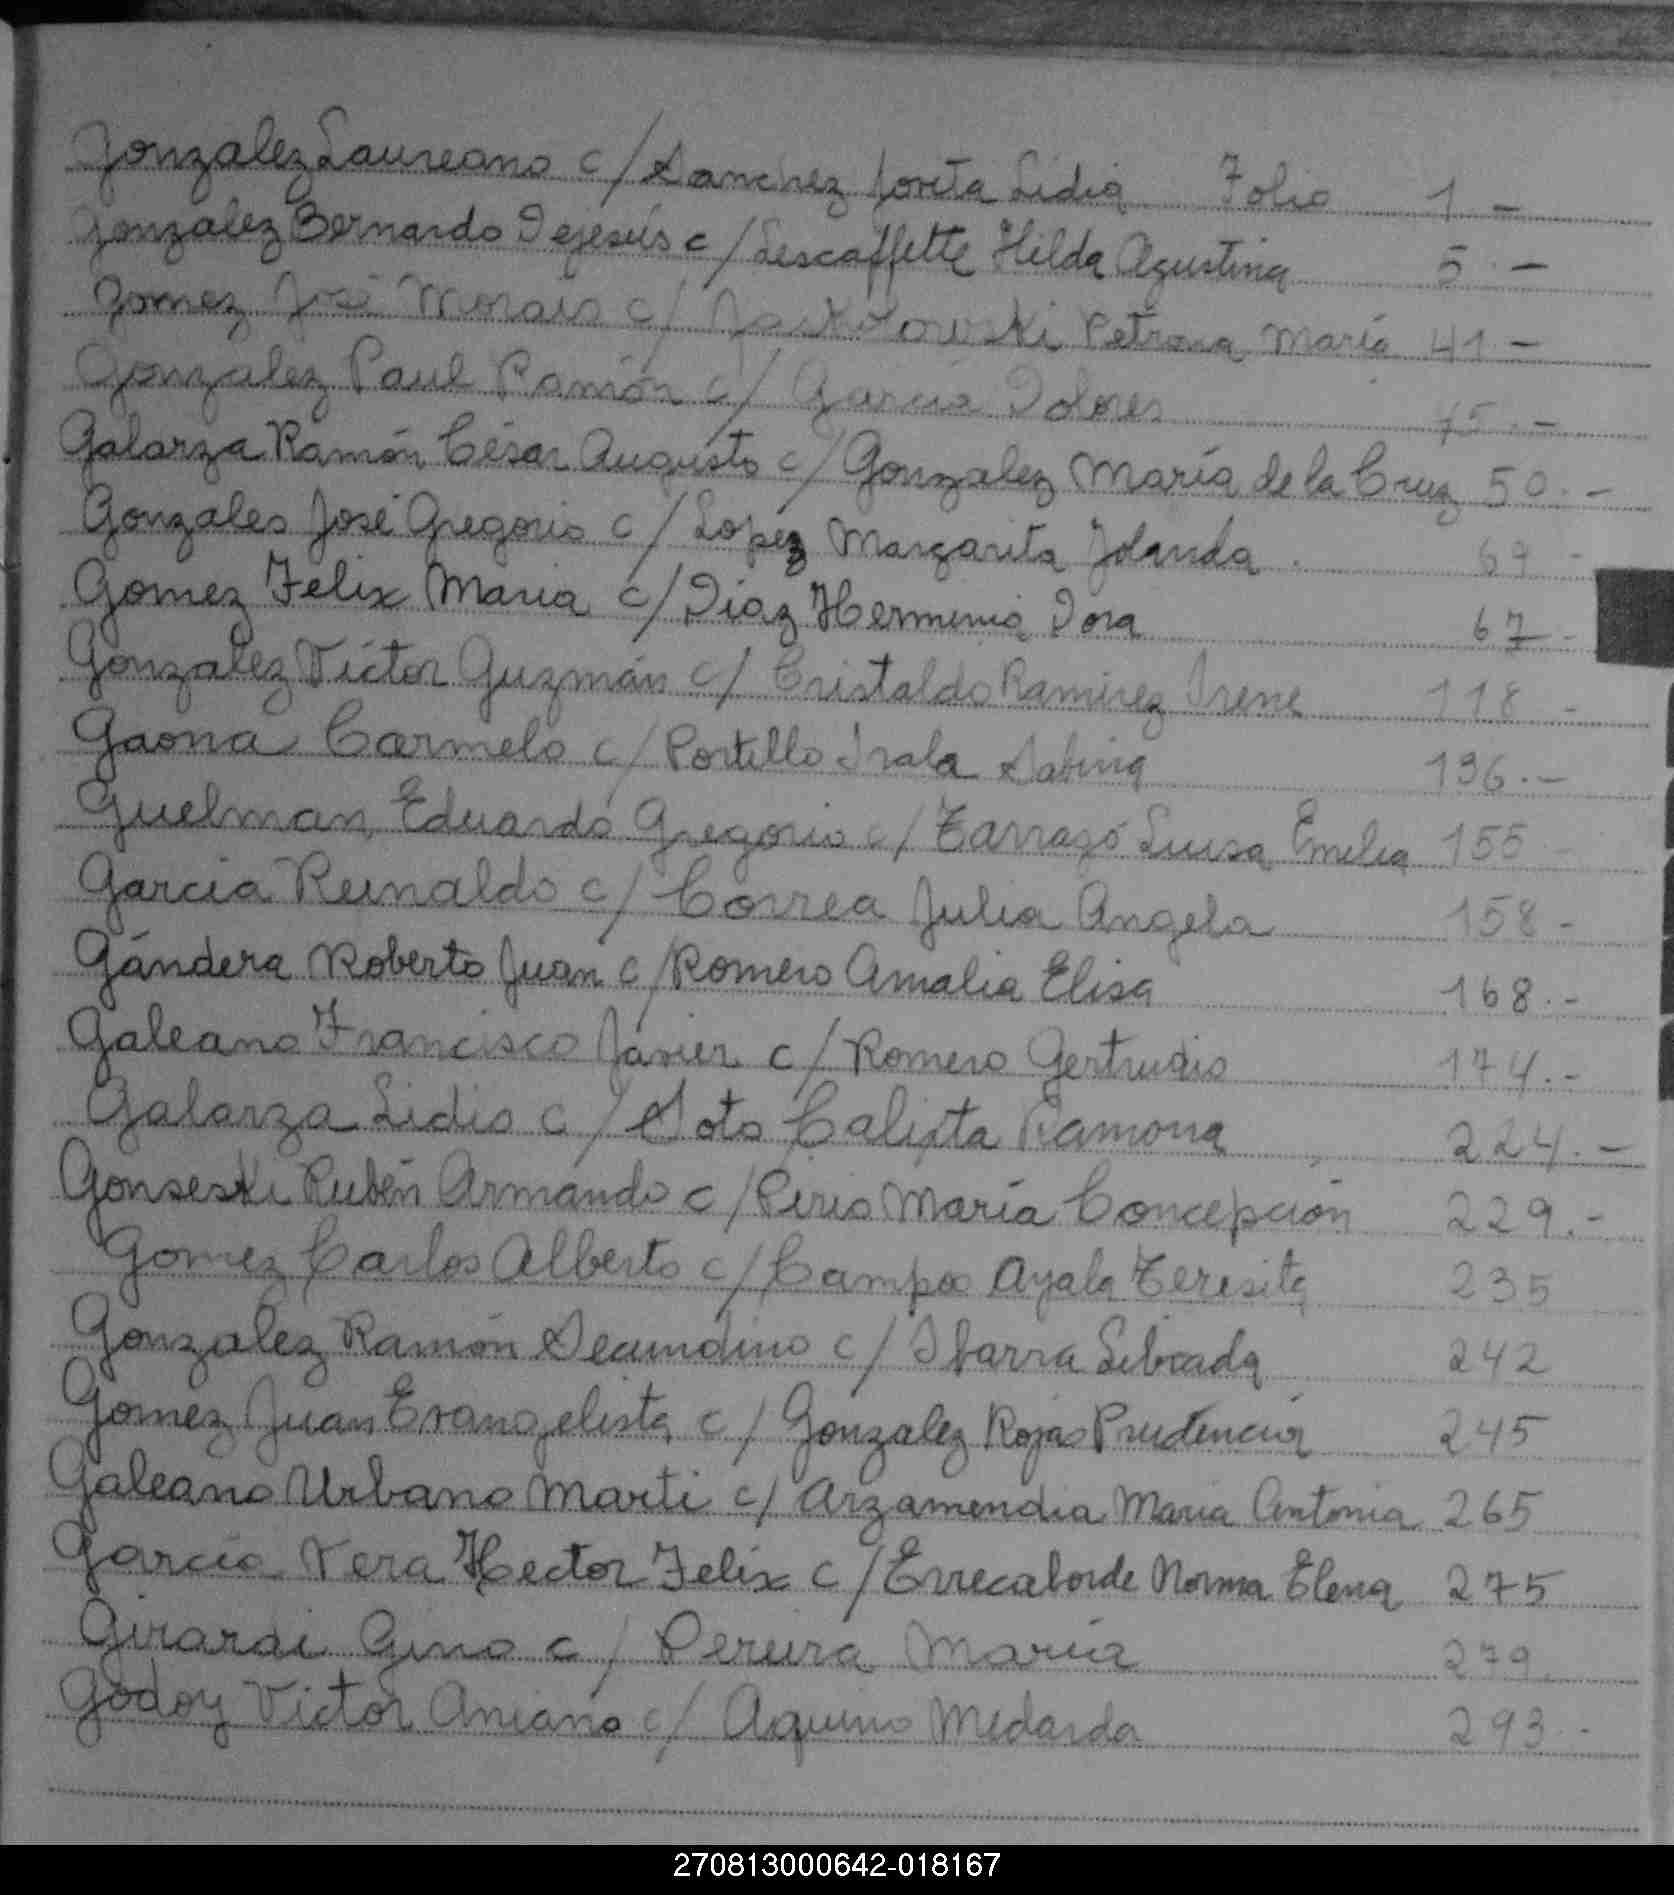 Gonzalez Laureano c/ Sanchez Jovita Lidia Folio 1.-
Gonzalez Bernardo Dejesús c/ Lescaffette Hilda Agustina 5.-
Gomez José Morais c/ Petrona María 41.-
Gonzalez Paul Ramón c/ Garcia Dolores 45.-
Galarza Ramón César Augusto c/ Gonzalez María de la Cruz 50.-
Gonzales José Gregorio c/ Lopez Margarita Jolanda 64.-
Gomez Felix Maria c/ Diaz Herminia Dora 67.-
Gonzalez Víctor Guzmán c/ Cristaldo Ramirez Irene 118.-
Gaona Carmelo c/ Portillo Irala Sabina 136.-
Guelman Eduardo Gregorio c/ Tarragó Luisa Emelia 155.-
Garcia Reinaldo c/ Correa Julia Angela 158.-
Gándera Roberto Juan c/ Romero Amalia Elisa 168.-
Galeano Francisco Javier c/ Romero Gertrudis 174.-
Galarza Lidio c/ Soto Calixta Ramona 224.-
Gonseski Rubén Armando c/ Piris María Concepción 229.-
Gomez Carlos Alberto c/ Campos Ayala Teresita 235
Gonzalez Ramón Secundino c/ Ibarra Librada 242
Gomez Juan Evangelista c/ Gonzalez Rojas Prudencia 245
Galeano Urbano Marti c/ Arzamendia Maria Antonia 265
Garcia Vera Hector Felix c/ Errecalorde Norma Elena 275
Girardi Gino c/ Pereira María 279.
Godoy Victor Aniano c/ Aquino Medarda 293.-
270813000642-018167